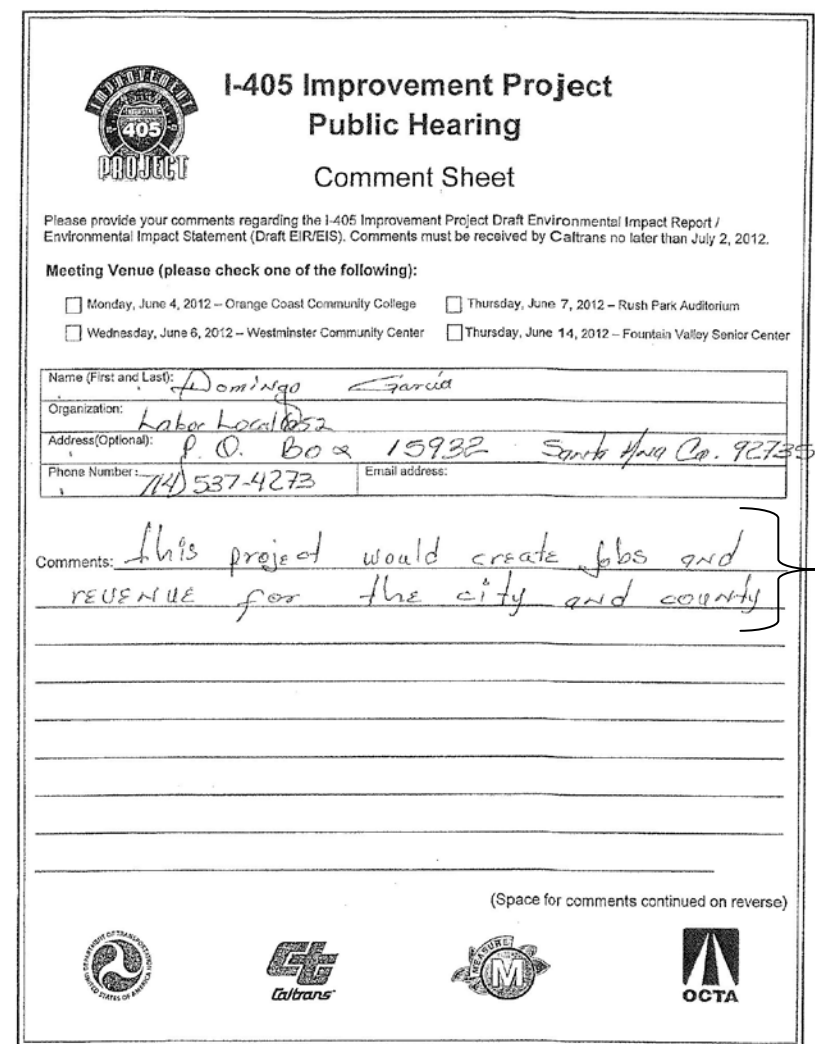 IMPROVEMENT
INTERSTATE
405
PROJECT
I-405 Improvement Project
Public Hearing
Comment Sheet
Please provide your comments regarding the I-405 Improvement Project Draft Environmental Impact Report /
Environmental Impact Statement (Draft EIR/EIS). Comments must be received by Caltrans no later than July 2, 2012.
Meeting Venue (please check one of the following):
Monday, June 4, 2012 – Orange Coast Community College
Thursday, June 7, 2012 – Rush Park Auditorium
Wednesday, June 6, 2012 – Westminster Community Center
Thursday, June 14, 2012 – Fountain Valley Senior Center
Name (First and Last): Domingo Garcia
Organization: Labor Local
Address(Optional): P.O. Box 15932 Santa Ana Ca. 92735
Phone Number: (714) 537-4273 Email address:
Comments: this project would create jobs and
revenue for the city and county
(Space for comments continued on reverse)
DEPARTMENT OF TRANSPORTATION
UNITED STATES OF AMERICA
Caltrans
MEASURE
M
OCTA